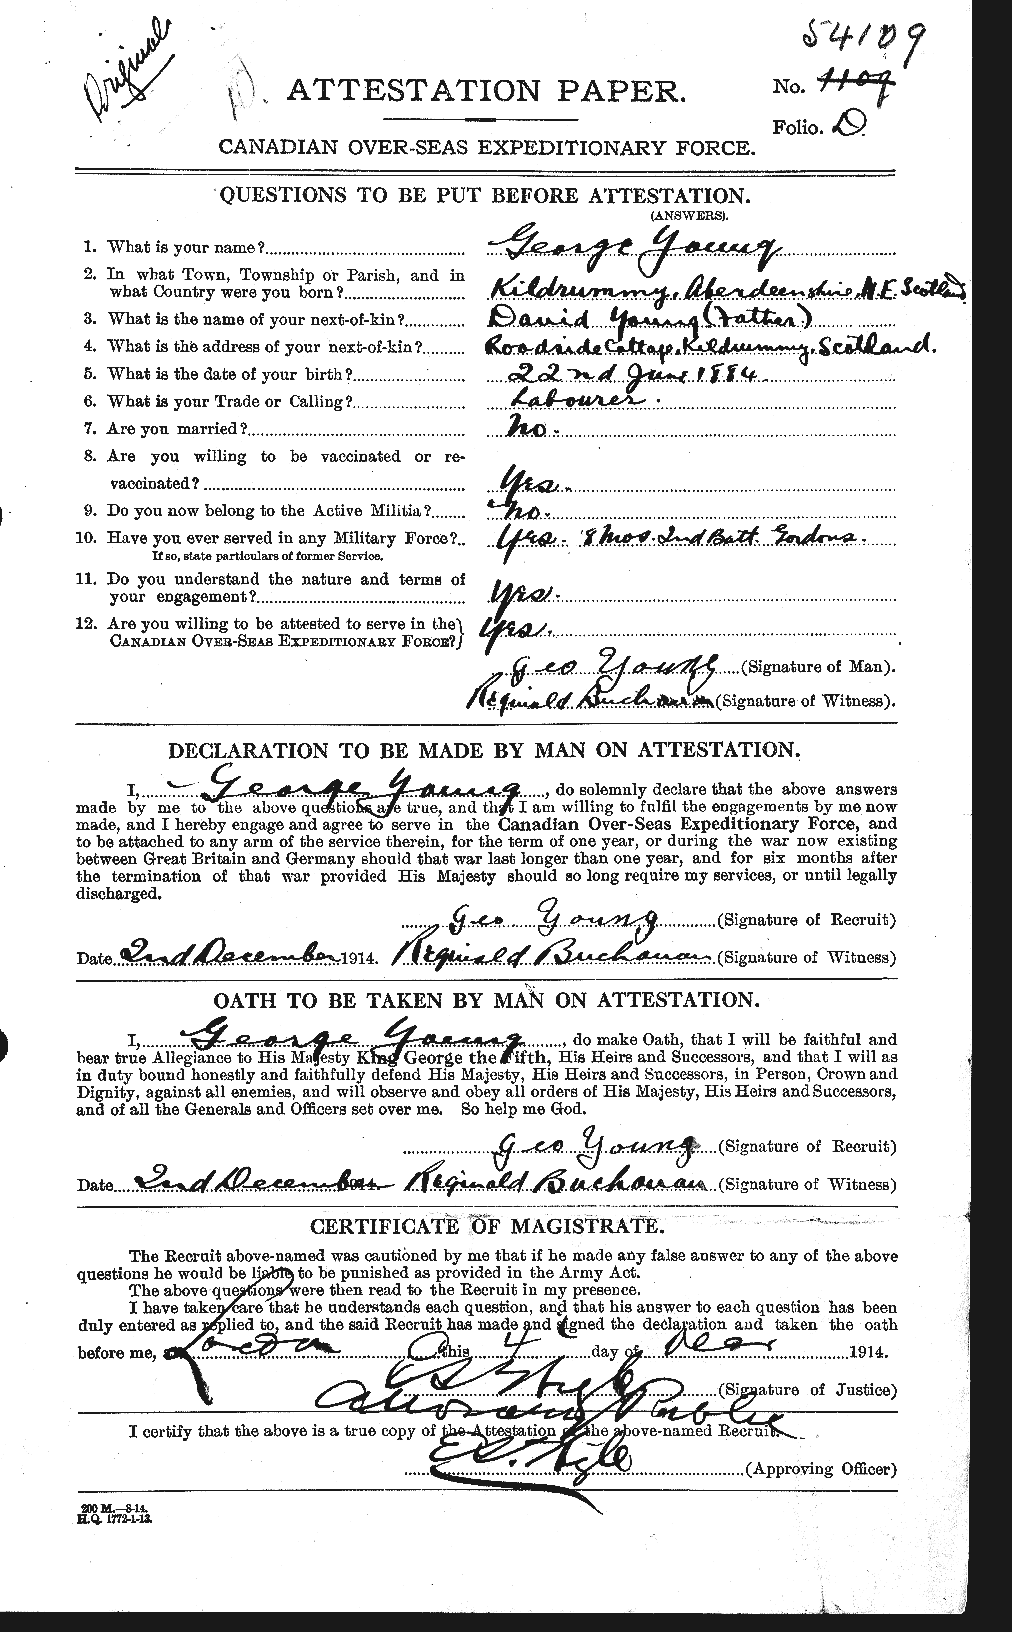 Original
54109
ATTESTATION PAPER.
No. 1109
Folio. D
CANADIAN OVER-SEAS EXPEDITIONARY FORCE.
QUESTIONS TO BE PUT BEFORE ATTESTATION.
(ANSWERS).
1. What is your name? George Young
2. In what Town, Township or Parish, and in
what Country were you born? Kildrummy, Aberdeenshire, N.E. Scotland
3. What is the name of your next-of-kin? David Young (Father)
4. What is the address of your next-of-kin? Roadside Cottage, Kildrummy, Scotland.
5. What is the date of your birth? 22nd June 1884
6. What is your Trade or Calling? Labourer.
7. Are you married? No.
8. Are you willing to be vaccinated or re-
vaccinated? Yes.
9. Do you now belong to the Active Militia? No.
10. Have you ever served in any Military Force? Yes. 8 Mos. 2nd Batt. Gordons.
If so, state particulars of former Service.
11. Do you understand the nature and terms of
your engagement? Yes.
12. Are you willing to be attested to serve in the
CANADIAN OVER-SEAS EXPEDITIONARY FORCE? Yes.
Geo Young (Signature of Man).
Reginald Buchanan (Signature of Witness).
DECLARATION TO BE MADE BY MAN ON ATTESTATION.
I, George Young, do solemnly declare that the above answers
made by me to the above questions are true, and that I am willing to fulfil the engagements by me now
made, and I hereby engage and agree to serve in the Canadian Over-Seas Expeditionary Force, and
to be attached to any arm of the service therein, for the term of one year, or during the war now existing
between Great Britain and Germany should that war last longer than one year, and for six months after
the termination of that war provided His Majesty should so long require my services, or until legally
discharged.
Geo Young (Signature of Recruit)
Date 2nd December 1914. Reginald Buchanan (Signature of Witness)
OATH TO BE TAKEN BY MAN ON ATTESTATION.
I, George Young, do make Oath, that I will be faithful and
bear true Allegiance to His Majesty King George the Fifth, His Heirs and Successors, and that I will as
in duty bound honestly and faithfully defend His Majesty, His Heirs and Successors, in Person, Crown and
Dignity, against all enemies, and will observe and obey all orders of His Majesty, His Heirs and Successors,
and of all the Generals and Officers set over me. So help me God.
Geo Young (Signature of Recruit)
Date 2nd December Reginald Buchanan (Signature of Witness)
CERTIFICATE OF MAGISTRATE.
The Recruit above-named was cautioned by me that if he made any false answer to any of the above
questions he would be liable to be punished as provided in the Army Act.
The above questions were then read to the Recruit in my presence.
I have taken care that he understands each question, and that his answer to each question has been
duly entered as replied to, and the said Recruit has made and signed the declaration and taken the oath
before me, at London this 4 day of Decr 1914.
(Signature of Justice)
Public
I certify that the above is a true copy of the Attestation of the above-named Recruit.
(Approving Officer)
200 M.—8-14.
H.Q. 1772-1-13.